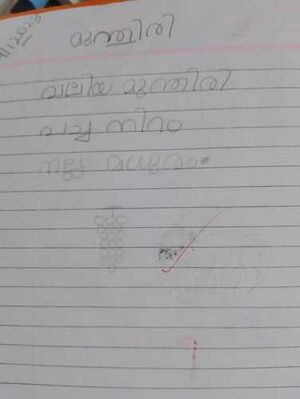 മുന്തിരി
വലിയ മുന്തിരി
പച്ച നിറം
നല്ല മധുരം.